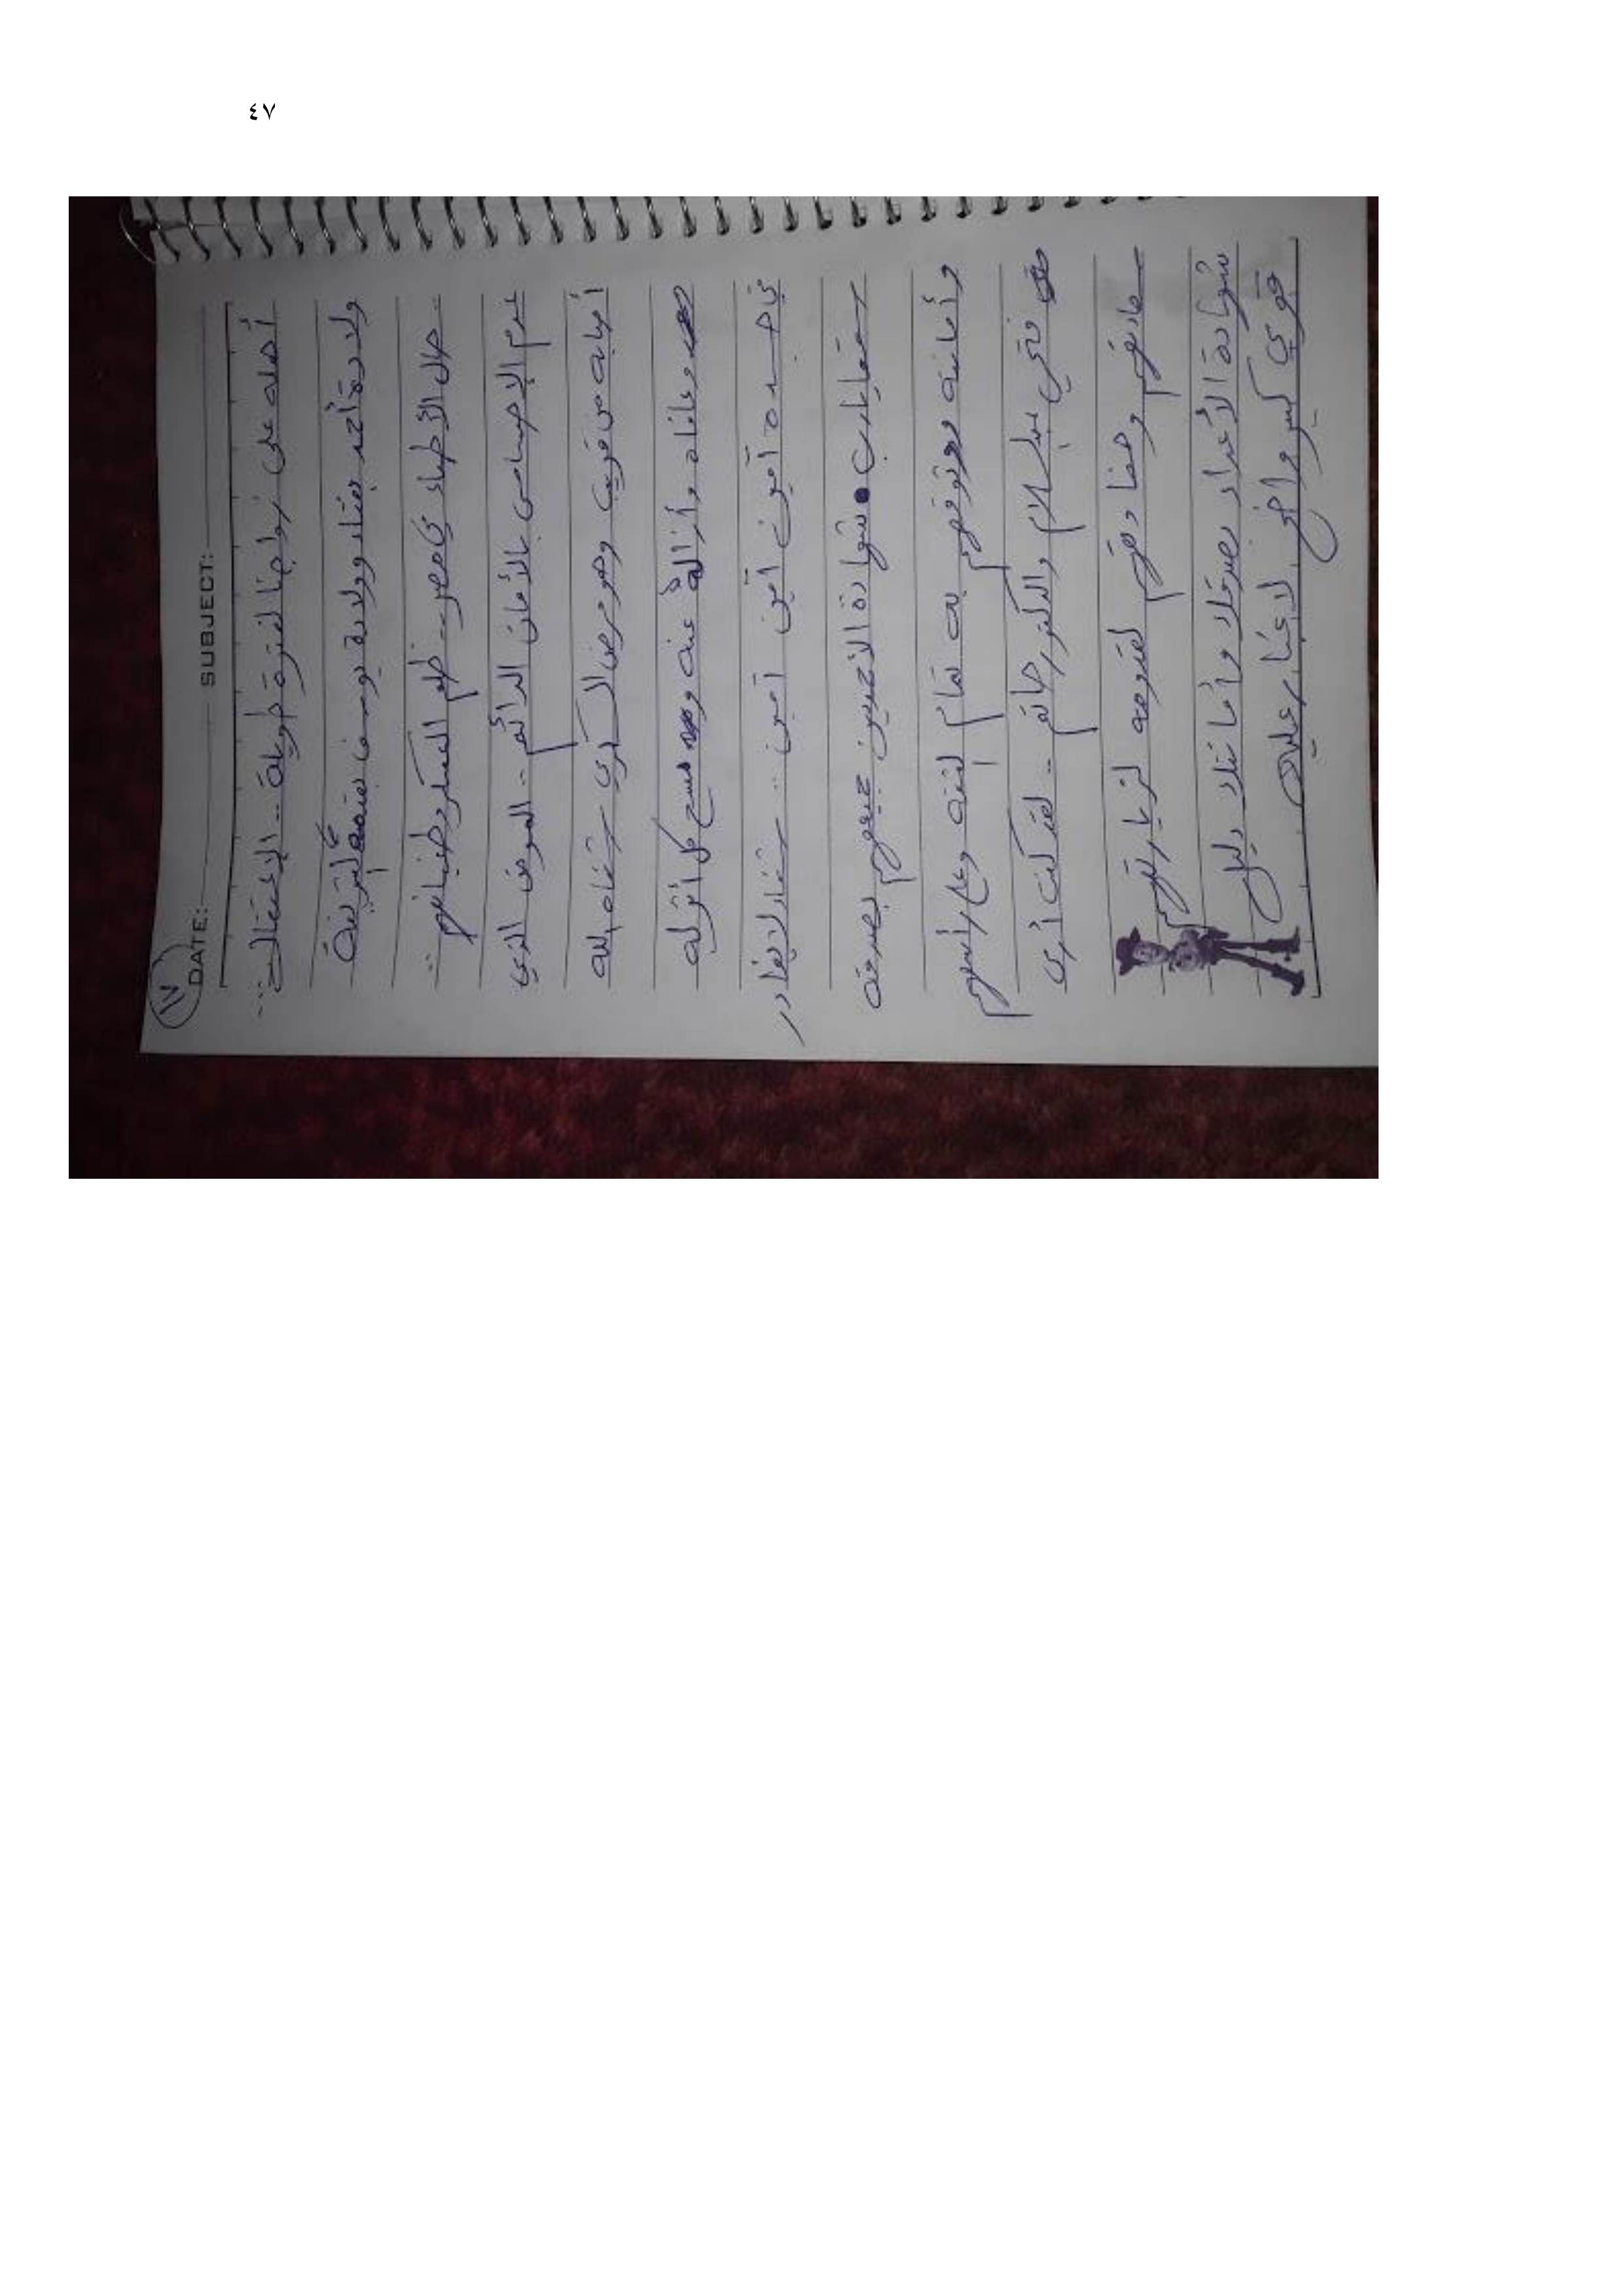 ٤٧
١٧
DATE: SUBJECT:
أهله على زواجنا لفترة طويلة .. الإعتقالات ...
ولادة أحمد بعناء وولادة يوسف
حال الأطباء في مصر .. ظلم العسكر
عدم الإحساس بالأمان الدائم .. المرض الذي
أصابه من قريب وهو مرض السكري شفاه الله
وعافاه وأزاله عنه ومسح كل أثر له
في جسده آمين آمين آمين آمين .. شفاء لا يغادر
سقما يارب شهادة الأخرين جميعهم بصدقه
وأمانته وثوقهم به تمام الثقة وعلى رأسهم
فتحي عبد السلام والدكتور حاتم .. لقد كنت أرى
سعادتهم وصفا دقتهم لفترحه لزيارتهم
شهادة الأعداء بصدقك وأمانتك دليل
قوي كبير وواضح لا غبار عليه